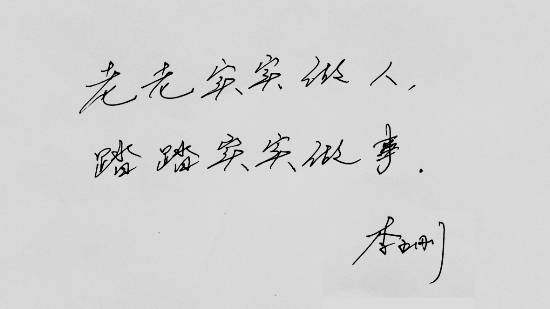 老老实实做人，
踏踏实实做事．
李玉刚